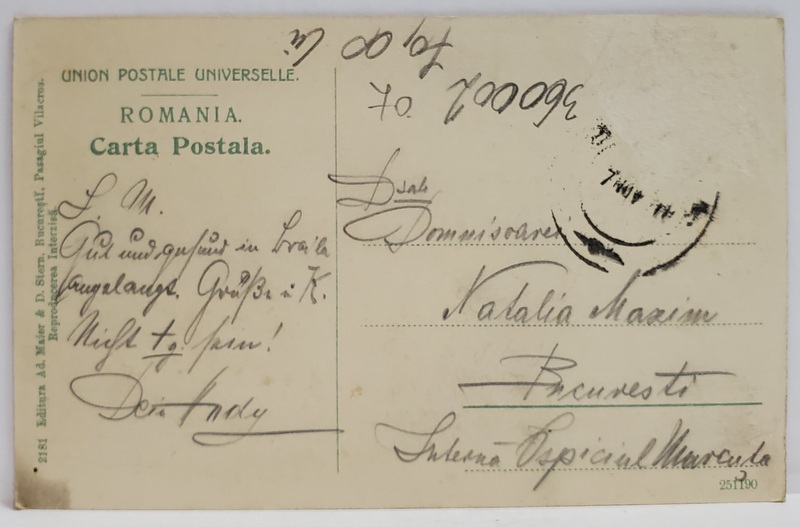 UNION POSTALE UNIVERSELLE.
ROMANIA.
Carta Postala.
2181 Editura Ad. Maier & D. Stern, Bucureștĭ, Pasagiul Vilacros.
Reproducerea Interzisă.
L. M.
Gut und gesund in Braila
angelangt. Grüße u K.
Nicht sein!
Dein Andy
360002
Dsale
Domnisoarei
Natalia Maxim
Bucuresti
Internă Ospiciul Marcuta
251190